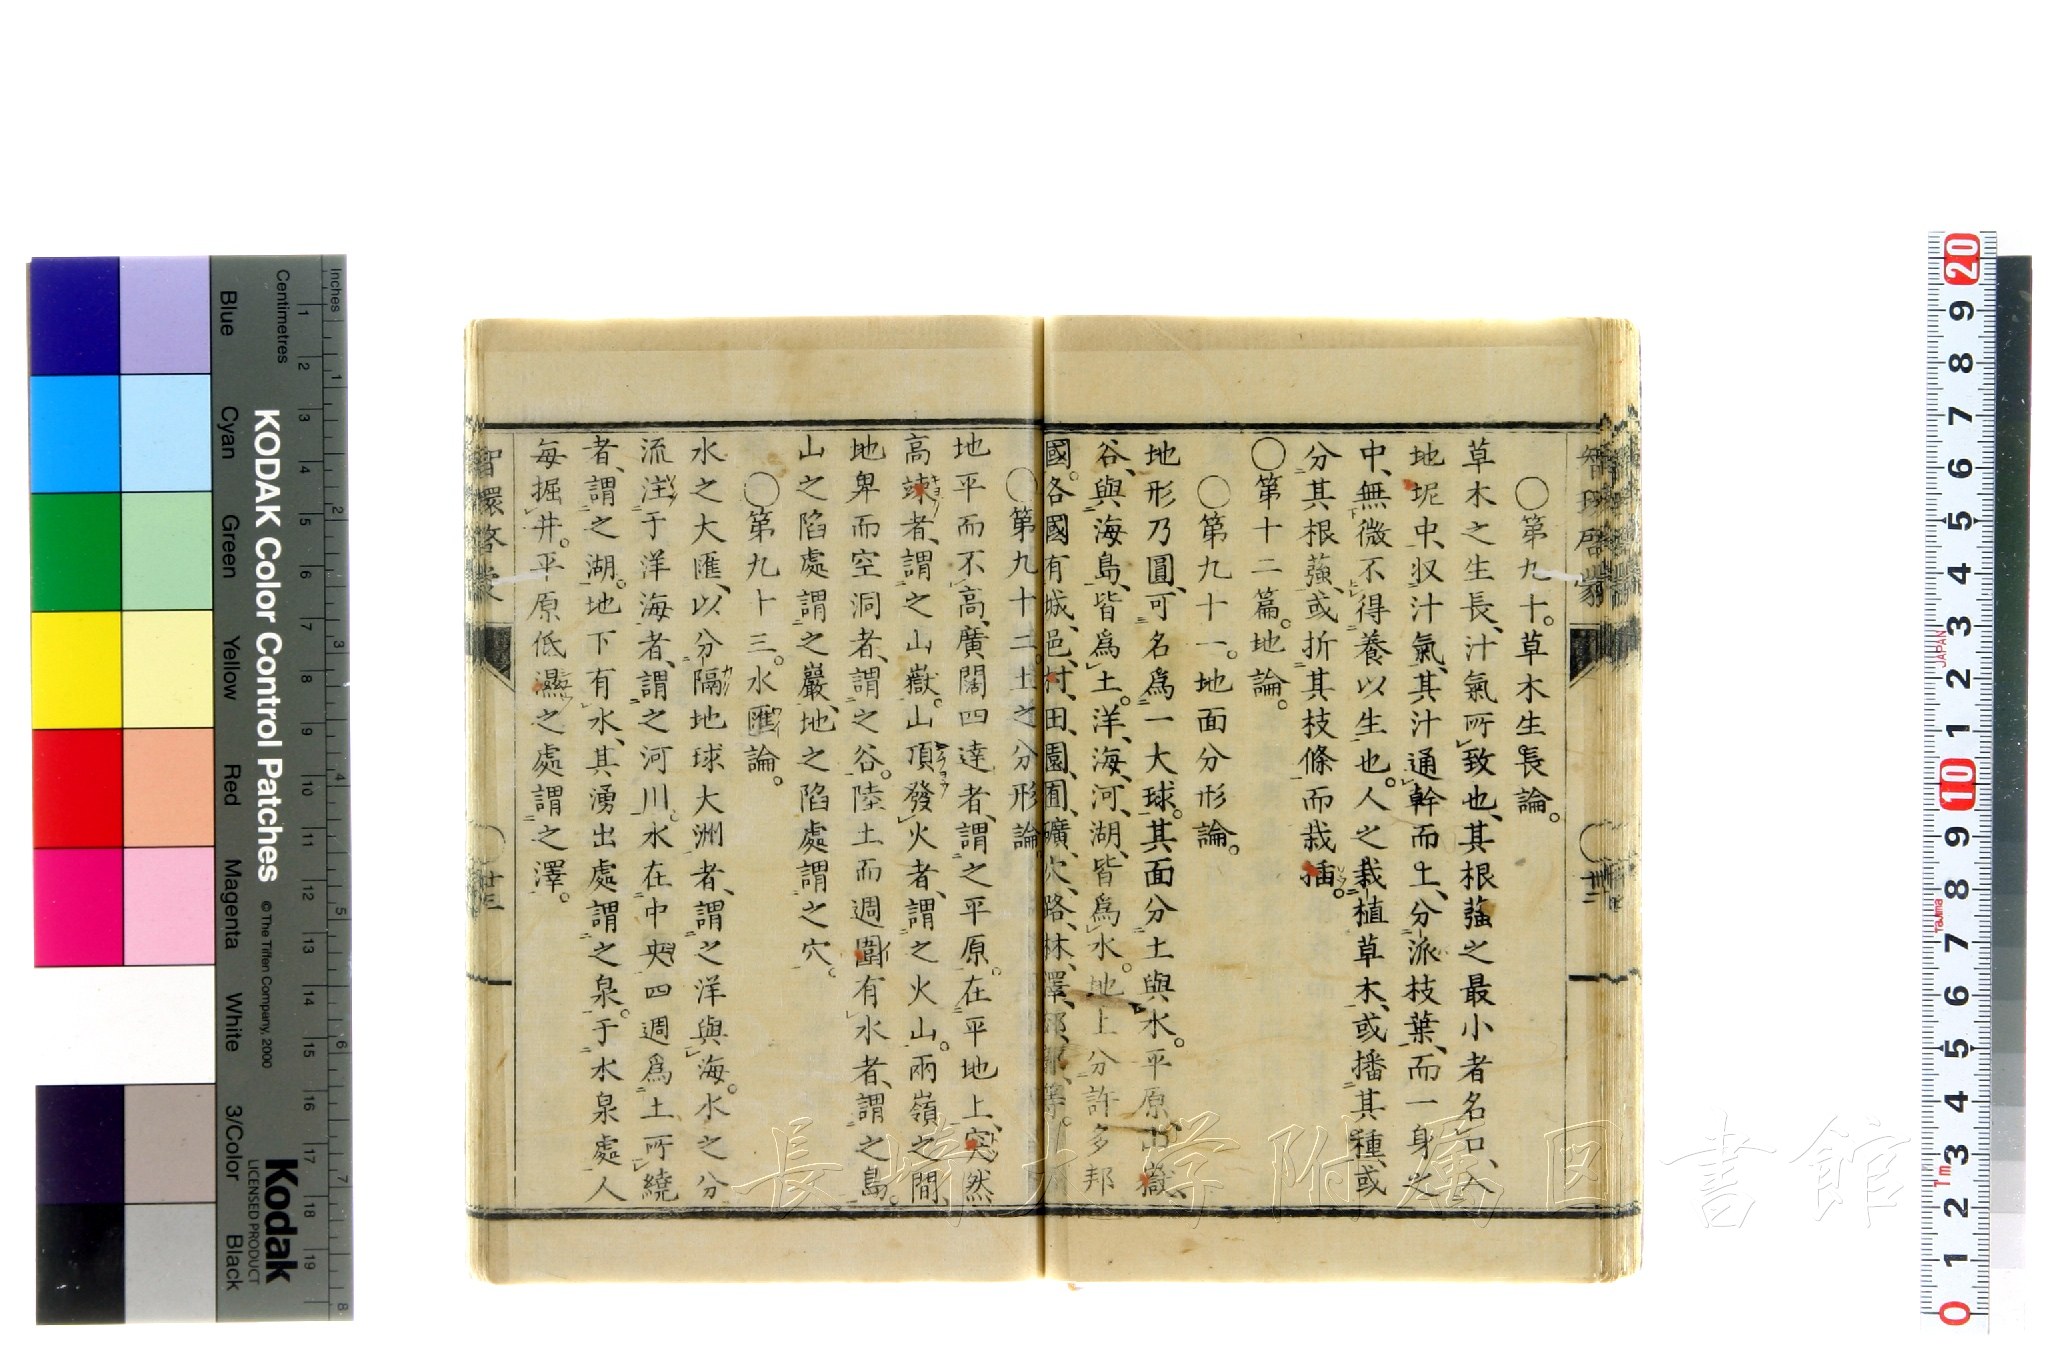 ○第九十。草木生長論。
草木之生長、汁氣所致也、其根蕦之最小者名口、入
地坭中、収汁氣、其汁通幹而上、分派枝葉、而一身之
中、無微不得養以生也。人之栽植草木、或播其種、或
分其根蕦、或折其枝條而栽插。
○第十二篇。地論。
○第九十一。地面分形論。
地形乃圓、可名為一大球。其面分土與水。平原、山嶽、
谷、與海島、皆為土。洋、海、河、湖、皆為水。地上分許多邦
國。各國有城、邑、村、田、園、囿、礦、穴、路、林、澤、
○第九十二。土之分形論。
地平而不高、廣闊四達者、謂之平原。在平地上、突然
高竦者、謂之山嶽。山頂發火者、謂之火山。兩嶺之間、
地卑而空洞者、謂之谷。陸土而週圍有水者、謂之島。
山之陷處謂之巖、地之陷處謂之穴。
○第九十三。水匯論。
水之大匯、以分隔地球大洲者、謂之洋與海。水之分
流注于洋海者、謂之河川。水在中央四週為土所繞
者、謂之湖。地下有水、其湧出處謂之泉。于水泉處人
每掘井。平原低濕之處謂之澤。
智環啓蒙
廿三
長崎大学附属図書館
KODAK Color Control Patches
© The Tiffen Company, 2000
Kodak
LICENSED PRODUCT
Inches
Centimetres
Blue
Cyan
Green
Yellow
Red
Magenta
White
3/Color
Black
1 2 3 4 5 6 7 8 9 10 11 12 13 14 15 16 17 18 19
1 2 3 4 5 6 7 8
20 9 8 7 6 5 4 3 2 1 10 9 8 7 6 5 4 3 2 1 0
JAPAN
Tajima
Tm